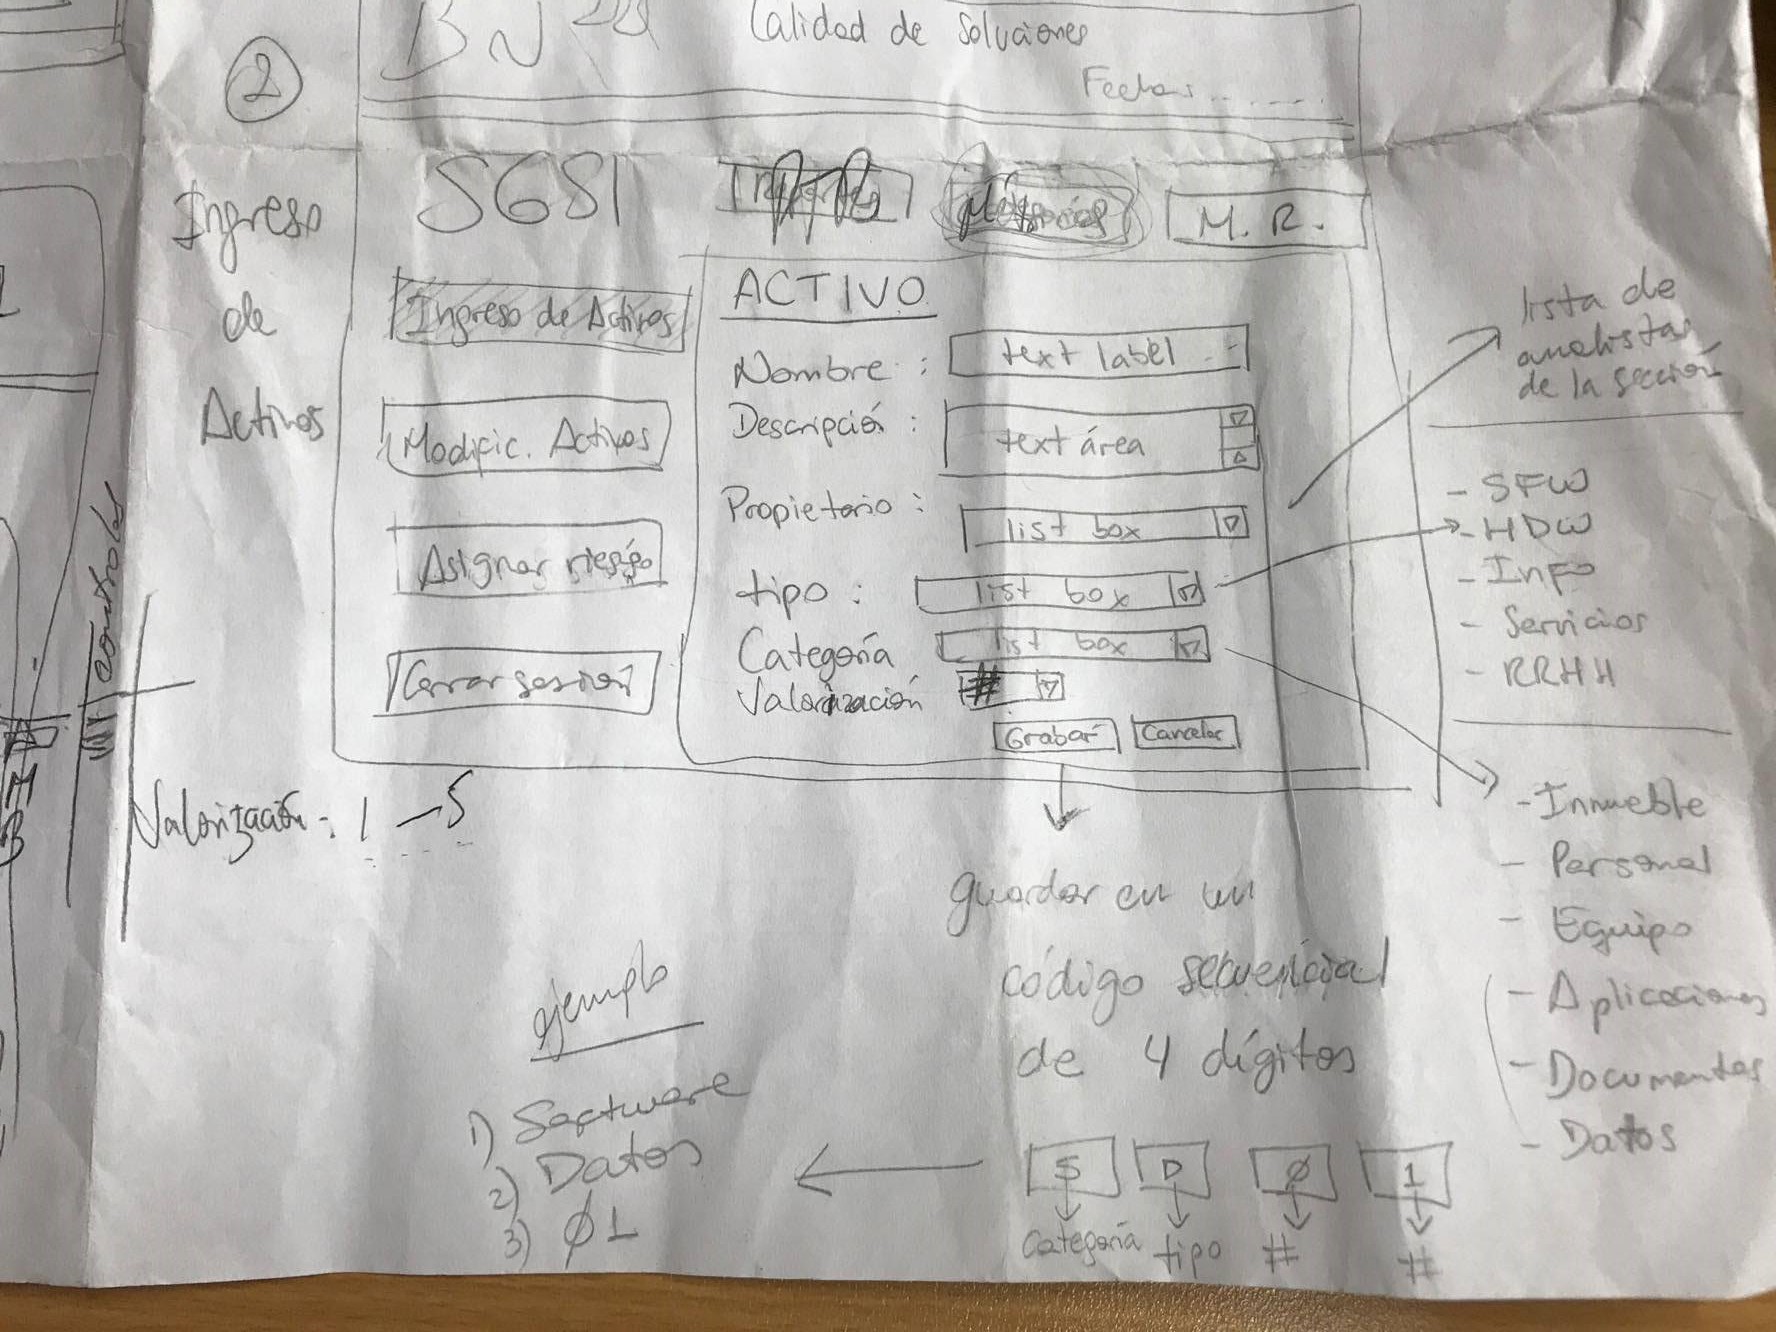 2
Calidad de Soluciones
Fecha: ........
Ingreso
de
Activos
SGSI
M. R.
Ingreso de Activos
Modific. Activos
Asignar riesgo
Cerrar sesión
ACTIVO
Nombre : text label
Descripción : text área
Propietario : list box
tipo : list box
Categoría list box
Valorización #
Grabar Cancelar
lista de
analistas
de la sección
- SFW
- HDW
- Info
- Servicios
- RRHH
- Inmueble
- Personal
- Equipo
- Aplicaciones
- Documentos
- Datos
controles
Valorización: 1 - 5
guardar en un
código secuencial
de 4 dígitos
S D Ø 1
Categoría tipo # #
ejemplo
1) Software
2) Datos
3) Ø1